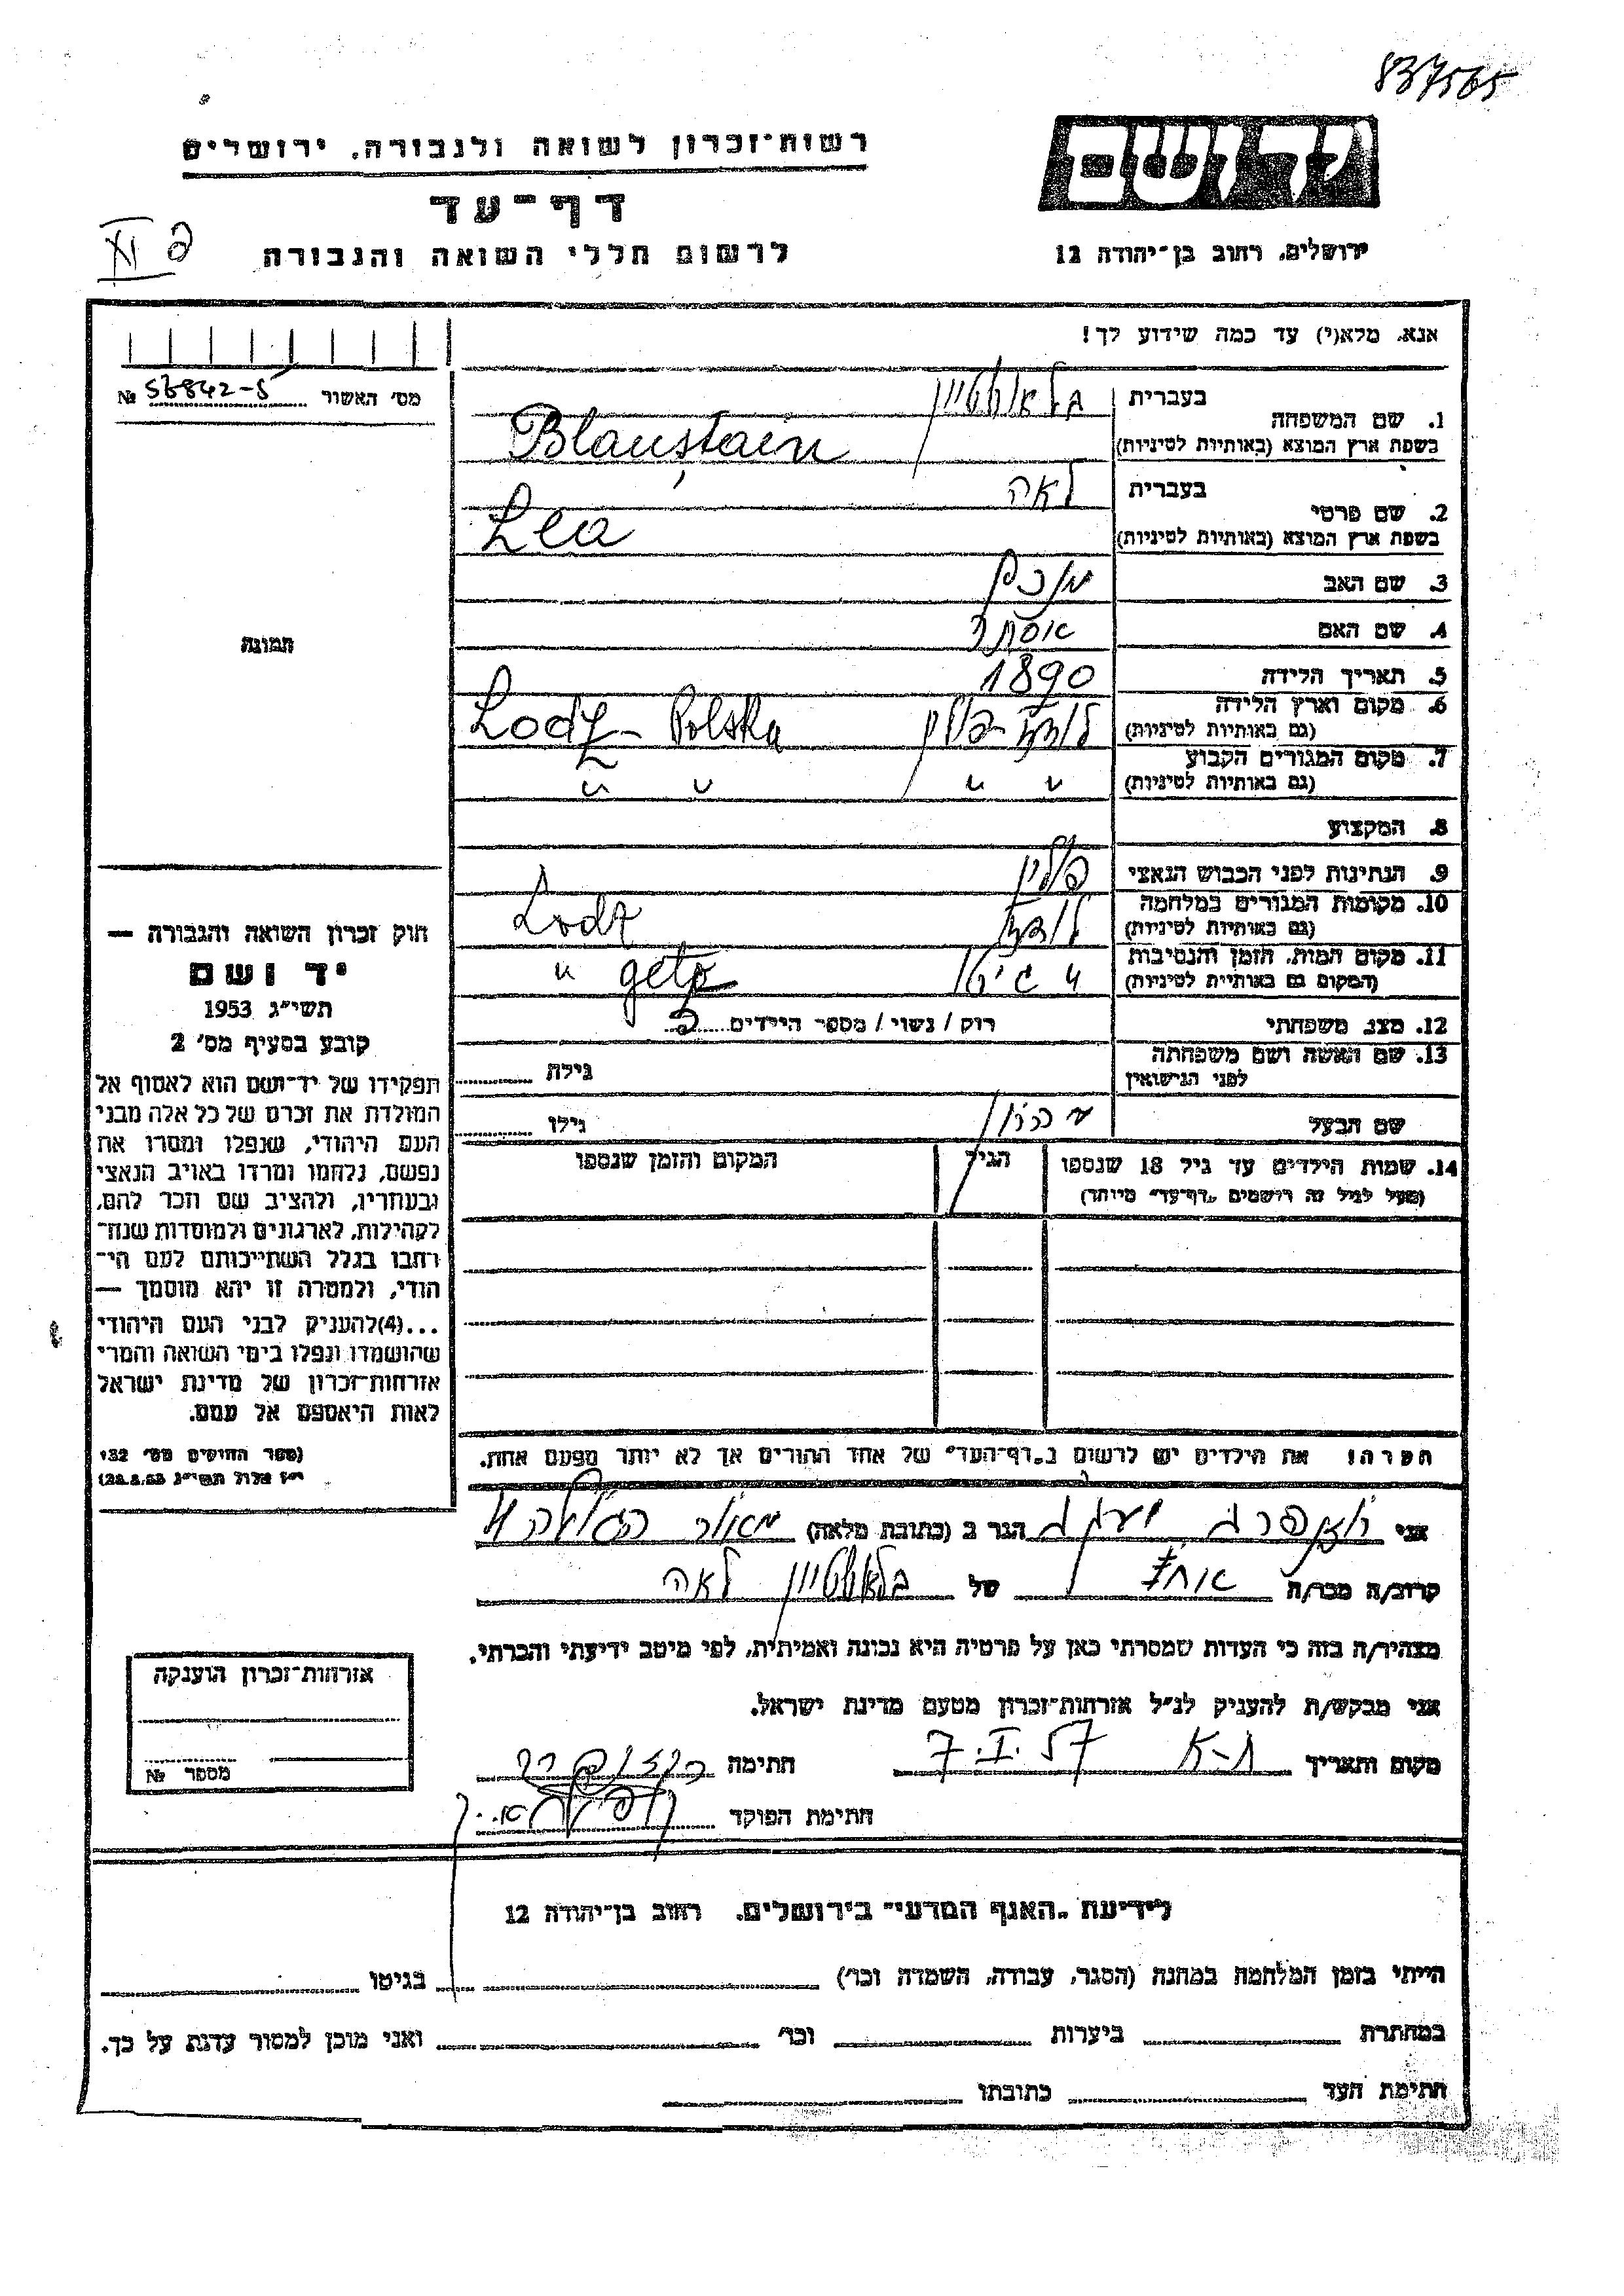 837565
רשות־זכרון לשואה ולגבורה, ירושלים
יד ושם
דף־עד
לרשום חללי השואה והגבורה
ירושלים, רחוב בן־יהודה 12
אנא, מלא(י) עד כמה שידוע לך!
מס׳ האשור 56842-5 №
1. שם המשפחה
בעברית בלאושטיין
בשפת ארץ המוצא (באותיות לטיניות) Blaustain
2. שם פרטי
בעברית לאה
בשפת ארץ המוצא (באותיות לטיניות) Lea
3. שם האב מנחם
4. שם האם אסתר
5. תאריך הלידה 1890
6. מקום וארץ הלידה לודז׳ - פולין Lodz - Polska
(גם באותיות לטיניות)
7. מקום המגורים הקבוע " " " "
(גם באותיות לטיניות)
8. המקצוע
9. הנתינות לפני הכבוש הנאצי פולין
10. מקומות המגורים במלחמה לודז Lodz
(גם באותיות לטיניות)
11. מקום המות, הזמן והנסיבות " גיטו " geto
(המקום גם באותיות לטיניות)
12. מצב משפחתי רוק / נשוי / מספר הילדים
13. שם האשה ושם משפחתה גילה
לפני הנישואין
שם הבעל אהרון גילו
14. שמות הילדים עד גיל 18 שנספו הגיל המקום והזמן שנספו
(מעל לגיל זה רושמים „דף־עד״ מיוחד)
הערה! את הילדים יש לרשום ב„דף־העד״ של אחד ההורים אך לא יותר מפעם אחת.
תמונה
חוק זכרון השואה והגבורה —
יד ושם
תשי״ג 1953
קובע בסעיף מס׳ 2
תפקידו של יד־ושם הוא לאסוף אל
המולדת את זכרם של כל אלה מבני
העם היהודי, שנפלו ומסרו את
נפשם, נלחמו ומרדו באויב הנאצי
ובעוזריו, ולהציב שם וזכר להם,
לקהילות, לארגונים ולמוסדות שנח־
רבו בגלל השתייכותם לעם הי־
הודי, ולמטרה זו יהא מוסמך —
...(4)להעניק לבני העם היהודי
שהושמדו ונפלו בימי השואה והמרי
אזרחות־זכרון של מדינת ישראל
לאות היאספם אל עמם.
(ספר החוקים מס׳ 132
י״ז אלול תשי״ג 28.8.53)
אני יעקב הגר ב (כתובת מלאה)
קרוב/ה מכר/ה של בלאושטיין לאה
מצהיר/ה בזה כי העדות שמסרתי כאן על פרטיה היא נכונה ואמיתית, לפי מיטב ידיעתי והכרתי.
אני מבקש/ת להעניק לנ״ל אזרחות־זכרון מטעם מדינת ישראל.
מקום ותאריך ת-א 7.I.57 חתימה
חתימת הפוקד
אזרחות־זכרון הוענקה
מספר №
לידיעת „האגף המדעי״ בירושלים, רחוב בן־יהודה 12
הייתי בזמן המלחמה במחנה (הסגר, עבודה, השמדה וכו׳) בגיטו
במחתרת ביערות וכו׳ ואני מוכן למסור עדות על כך.
חתימת העד כתובתו